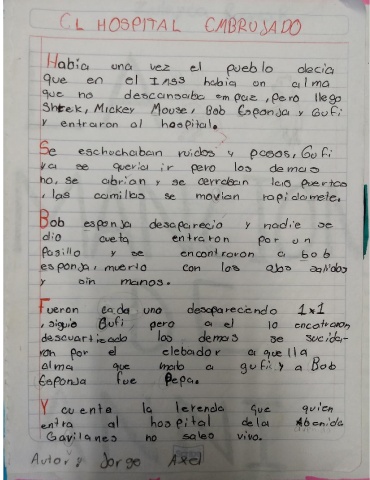 EL HOSPITAL EMBRUJADO
Habia una vez el pueblo decia
que en el IMSS habia on alma
que no descansaba em paz, pero llego
Shrek, Mickey Mouse, Bob Esponja y Gufi
y entraron al hospital.
Se eschuchaban ruidos y pasos, Gufi
ya se queria ir pero los demas
no, se abrian y se cerraban las puertas
, las camillas se movian rapidamete.
Bob esponja desaparecio y nadie se
dio cueta entraron por un
pasillo y se encontraron a bob
esponja, muerto con los ojos salidos
y sin manos.
Fueron cada uno desapareciendo 1x1
, siguio Gufi pero a el lo encotraron
descuartizado los demas se sucida-
ron por el elebador aquella
alma que mato a gufi y a Bob
Esponja fue Pepa.
Y cuenta la leyenda que quien
entra al hospital dela Abenida
Gavilanes no sales vivo.
Autor: Jorge Axel